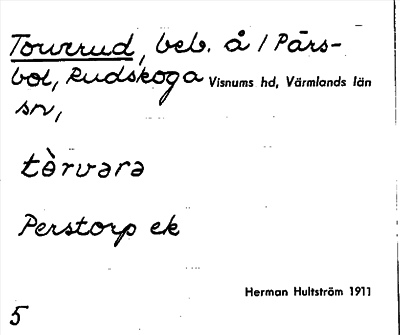 Tovrrud, beb. å 1 Pärs-
bol, Rudskoga Visnums hd, Värmlands län
sn,
tèrvara
Perstorp ek
Herman Hultström 1911
5